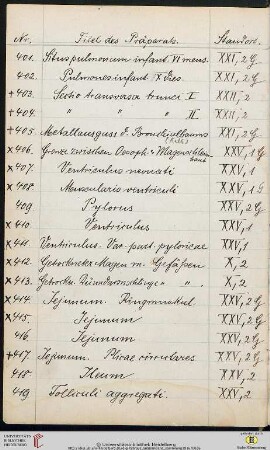 Nr. Titel des Präparats. Standort.
401. Situs pulmonum infant. VI mens. XXI, 2 G
402. Pulmones infant. X XXI, 2 G
+ 403. Sectio transversa trunci I XXII, 2
+ 404. " " " II XXII, 2
+ 405. Metallausguss d. Bronchialbaums XXI, 2 G
x 406. Grenze zwischen Oesoph. u. Magenschleimhaut XXV, 1 G
x 407. Ventriculus XXV, 1
x 408. Muscularis ventriculi XXV, 1 G
409 Pylorus XXV, 2 G
x 410. Ventriculus XXV, 1
x 411. Ventriculus. Var. part. pyloricae XXV, 1
x 412. Getrockneter Magen m. Gefässen X, 2
x 413. Getrockn. Dünndarmschlinge " " X, 2
x 414. Jejunum. Ringmuskul. XXV, 2 G
x 415. Jejunum XXV, 2 G
416. Jejunum XXV, 2 G
+ 417. Jejunum. Plicae circulares XXV, 2 G
418 Ileum XXV, 2 G
419. Folliculi aggregati. XXV, 2
UNIVERSITÄTS-BIBLIOTHEK HEIDELBERG
© Universitätsbibliothek Heidelberg